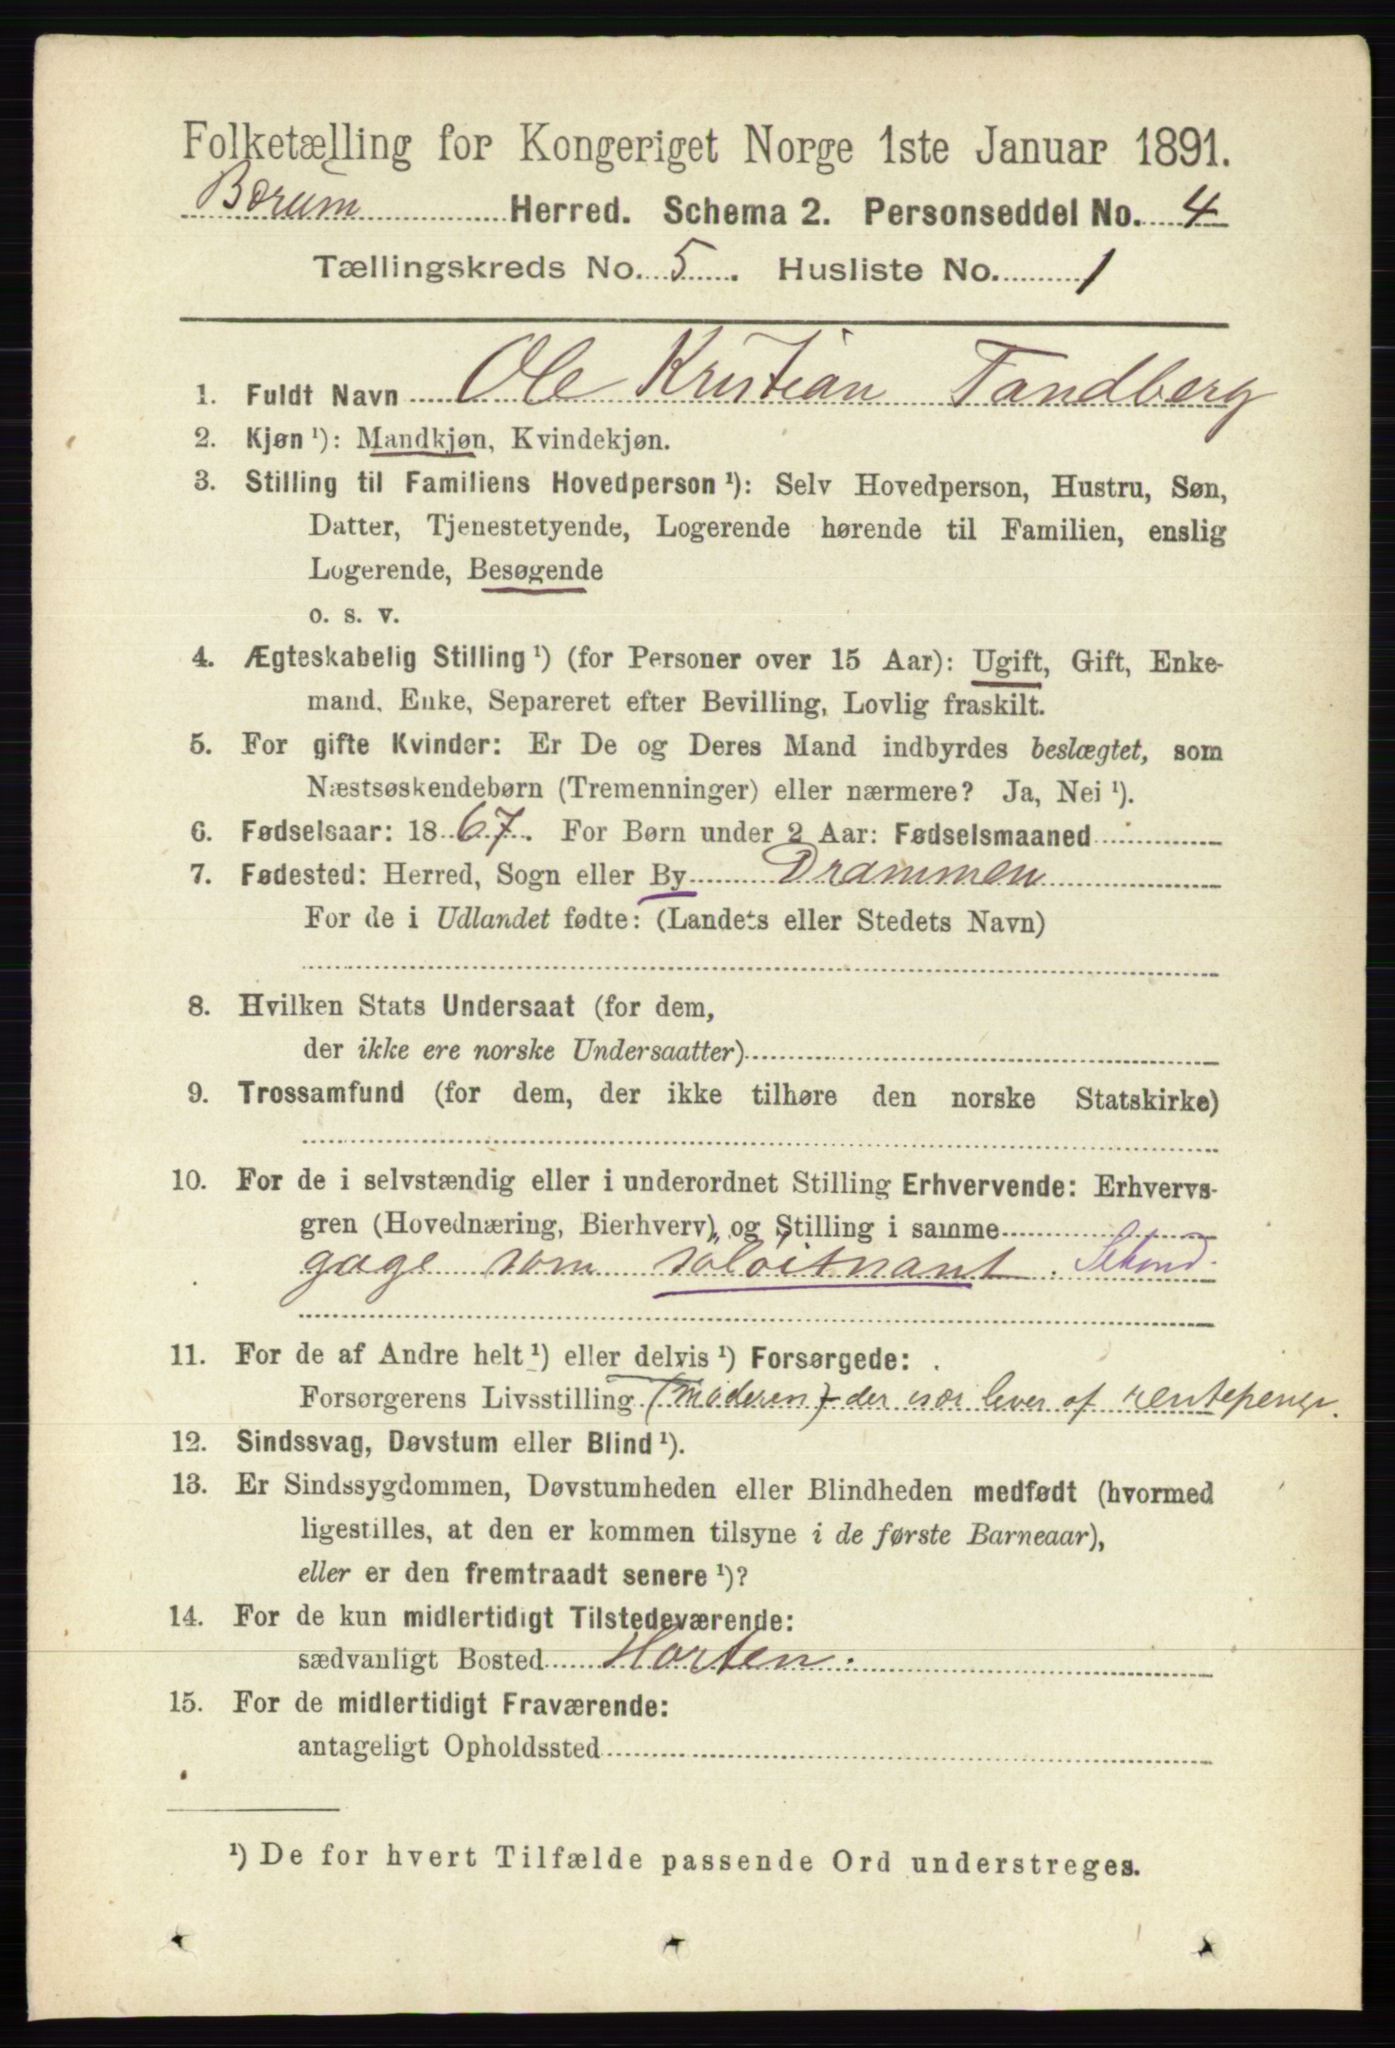 Folketælling for Kongeriget Norge 1ste Januar 1891.
Bærum Herred. Schema 2. Personseddel No. 4
Tællingskreds No. 5. Husliste No. 1
1. Fuldt Navn Ole Kristian Tandberg
2. Kjøn ¹): Mandkjøn, Kvindekjøn.
3. Stilling til Familiens Hovedperson ¹): Selv Hovedperson, Hustru, Søn,
Datter, Tjenestetyende, Logerende hørende til Familien, enslig
Logerende, Besøgende
o. s. v.
4. Ægteskabelig Stilling ¹) (for Personer over 15 Aar): Ugift, Gift, Enke-
mand, Enke, Separeret efter Bevilling, Lovlig fraskilt.
5. For gifte Kvinder: Er De og Deres Mand indbyrdes beslægtet, som
Næstsøskendebørn (Tremenninger) eller nærmere? Ja, Nei ¹).
6. Fødselsaar: 1867. For Børn under 2 Aar: Fødselsmaaned
7. Fødested: Herred, Sogn eller By Drammen
For de i Udlandet fødte: (Landets eller Stedets Navn)
8. Hvilken Stats Undersaat (for dem,
der ikke ere norske Undersaatter)
9. Trossamfund (for dem, der ikke tilhøre den norske Statskirke)
10. For de i selvstændig eller i underordnet Stilling Erhvervende: Erhvervs-
gren (Hovednæring, Bierhverv) og Stilling i samme
gage som søløitnant. Sekond.
11. For de af Andre helt ¹) eller delvis ¹) Forsørgede:
Forsørgerens Livsstilling (moderen) der især lever af rentepenge.
12. Sindssvag, Døvstum eller Blind ¹).
13. Er Sindssygdommen, Døvstumheden eller Blindheden medfødt (hvormed
ligestilles, at den er kommen tilsyne i de første Barneaar),
eller er den fremtraadt senere ¹)?
14. For de kun midlertidigt Tilstedeværende:
sædvanligt Bosted Horten.
15. For de midlertidigt Fraværende:
antageligt Opholdssted
¹) De for hvert Tilfælde passende Ord understreges.